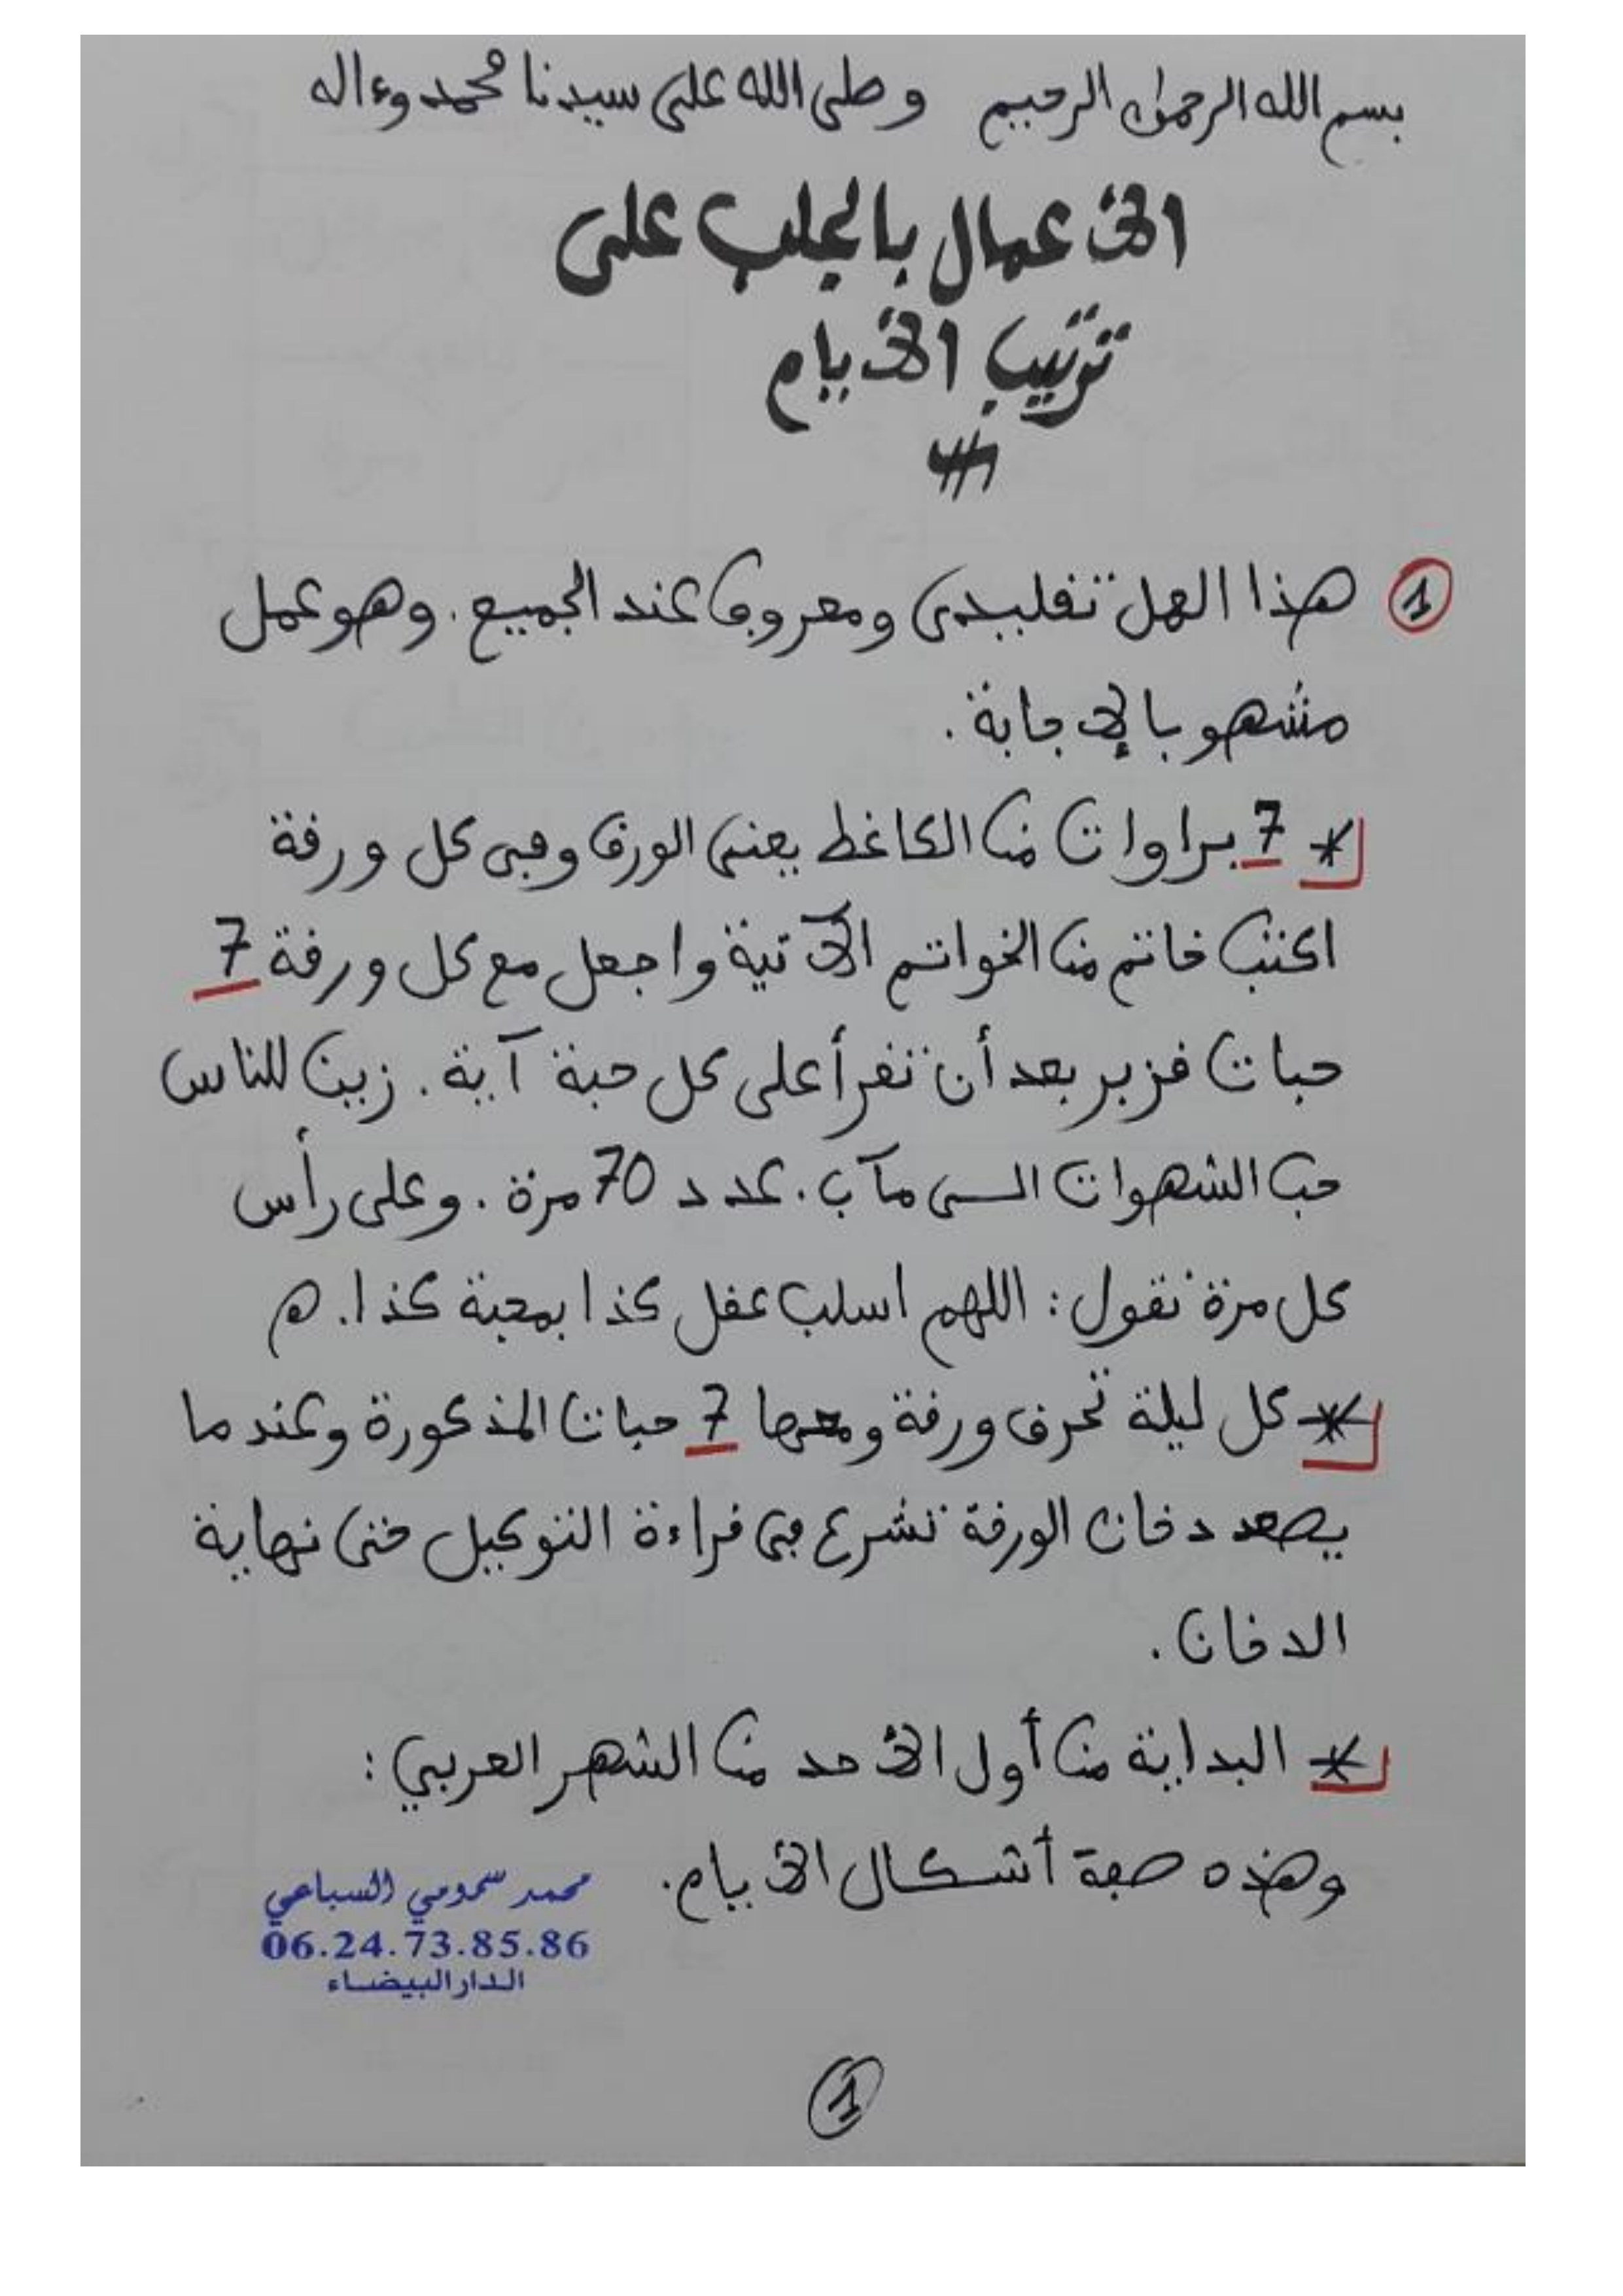 بسم الله الرحمن الرحيم وصلى الله على سيدنا محمد وءاله
الأعمال بالجلب على
ترتيب الأيام
① هذا العمل تقليدي ومعروف عند الجميع. وهو عمل
مشهو بالإجابة.
* 7 براوات من الكاغط يعني الورق وفي كل ورقة
اكتب خاتم من الخواتم الآتية واجعل مع كل ورقة 7
حبات قزبر بعد أن تقرأ على كل حبة آية. زين للناس
حب الشهوات الـى مآب. عدد 70 مرة. وعلى رأس
كل مرة تقول: اللهم اسلب عقل كذا بمحبة كذا. هـ
* كل ليلة تحرق ورقة ومعها 7 حبات المذكورة وعندما
يصعد دخان الورقة تشرع في قراءة التوكيل حتى نهاية
الدخان.
* البداية من أول الأحد من الشهر العربي:
وهذه صفة أشكال الأيام.
محمد سمومي السباعي
06.24.73.85.86
الدار البيضاء
①